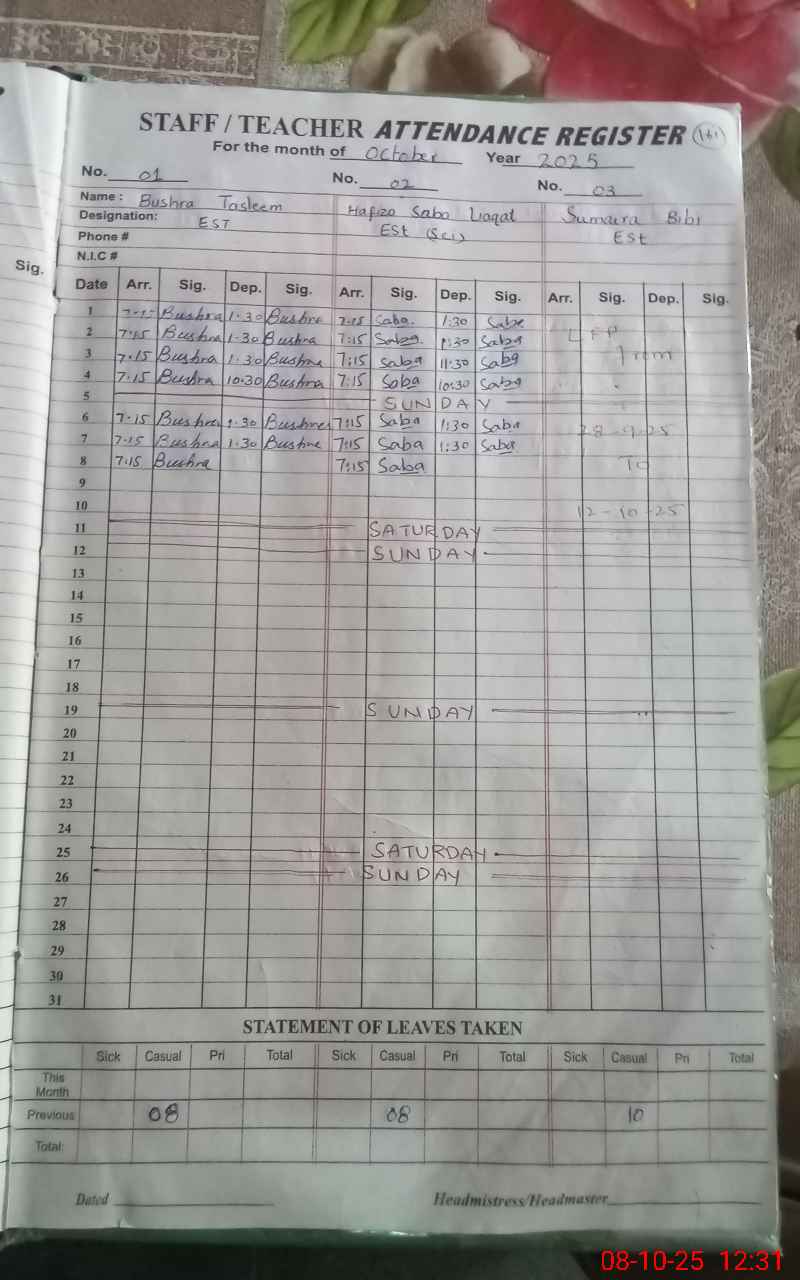 STAFF / TEACHER ATTENDANCE REGISTER
For the month of October Year 2025
No. 01 No. 02 No. 03
Name : Bushra Tasleem Hafiza Saba Liaqat Sumaira Bibi
Designation: EST ESt (Sci) ESt
Phone #
N.I.C #
Sig.
Date Arr. Sig. Dep. Sig. Arr. Sig. Dep. Sig. Arr. Sig. Dep. Sig.
1 7:15 Bushra 1:30 Bushra 7:15 Saba 1:30 Saba
2 7:15 Bushra 1:30 Bushra 7:15 Saba 1:30 Saba
3 7:15 Bushra 1:30 Bushra 7:15 Saba 11:30 Saba from
4 7:15 Bushra 10:30 Bushra 7:15 Saba 10:30 Saba
5 SUNDAY
6 7:15 Bushra 1:30 Bushra 7:15 Saba 1:30 Saba
7 7:15 Bushra 1:30 Bushra 7:15 Saba 1:30 Saba 28-9-25
8 7:15 Bushra 7:15 Saba To
9
10 12-10-25
11 SATURDAY
12 SUNDAY
13
14
15
16
17
18
19 SUNDAY
20
21
22
23
24
25 SATURDAY
26 SUNDAY
27
28
29
30
31
STATEMENT OF LEAVES TAKEN
Sick Casual Pri Total Sick Casual Pri Total Sick Casual Pri Total
This Month
Previous 08 08 10
Total:
Dated Headmistress/Headmaster
08-10-25 12:31